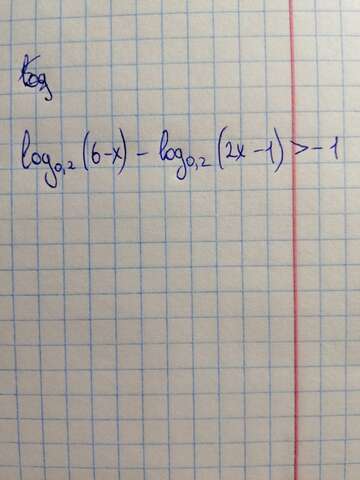 log
log₀,₂(6-x) - log₀,₂(2x-1) > -1